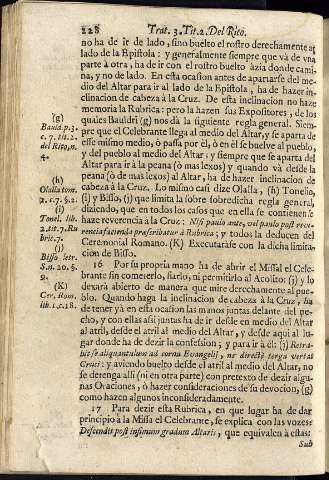 228 Trat. 3. Tit. 2. Del Rito.
no ha de ir de lado, sino buelto el rostro derechamente al
lado de la Epistola: y generalmente siempre que và de vna
parte à otra, ha de ir con el rostro buelto àzia donde cami-
na, y no de lado. En esta ocasion antes de apartarse del me-
dio del Altar para ir al lado de la Epistola, ha de hazer in-
clinacion de cabeza à la Cruz. De esta inclinacion no haze
memoria la Rubrica: pero la hazen sus Expositores, de los
quales Bauldri (g) nos dà la siguiente regla general. Siem-
pre que el Celebrante llega al medio del Altar, y se aparta de
esse mismo medio, ò passa por èl, ò en èl se buelve al pueblo,
y del pueblo al medio del Altar: y siempre que se aparta del
Altar para ir à la peana (ò mas lexos) y quando và desde la
peana (ò de mas lexos) al Altar, ha de hazer inclinacion de
cabeza à la Cruz. Lo mismo casi dize Olalla, (h) Tonelio,
(i) y Bisso, (j) que limita la sobredicha regla general,
diziendo, que en todos los casos que en ella se contienen se
haze reverencia à la Cruz: Nisi paulo ante, vel paulo post reve-
rencia facienda præscribatur à Rubrica; y todos la deducen del
Ceremonial Romano. (K) Executaràse con la dicha limita-
cion de Bisso.
16 Por su propria mano ha de abrir el Missal el Cele-
brante sin cometerlo, fiarlo, ni permitirlo al Acolito: (j) y lo
dexarà abierto de manera que mire derechamente al pue-
blo. Quando haga la inclinacion de cabeza à la Cruz, ha
de tener yà en esta ocasion las manos juntas delante del pe-
cho, y con ellas assi juntas ha de ir desde en medio del Altar
al atril, desde el atril al medio del Altar, y desde aqui al lu-
gar donde ha de dezir la confession; y para ir à èl: (j) Retra-
hit se aliquantulum ad cornu Evangelij, ne directè terga vertat
Cruci: y aviendo buelto desde el atril al medio del Altar, no
se detenga alli (ni en otra parte) con pretexto de dezir algu-
nas Oraciones, ò hazer consideraciones de su devocion, (g)
como hazen algunos inconsideradamente.
17 Para dezir esta Rubrica, en que lugar ha de dar
principio à la Missa el Celebrante, se explica con las vozes:
Descendit post infimum gradum Altaris, que equivalen à estas:
Sub
(g)
Bauld. p. 3.
c. 7. tit. 2.
del Rito, n.
4.
(h)
Olalla tom.
2. c. 7. §. 2.
(i)
Tonel. lib.
2. tit. 7. Ru
bric. 7.
(j)
Bisso letr.
S. n. 20. §.
2.
(K)
Cer. Rom.
lib. 1. c. 18.